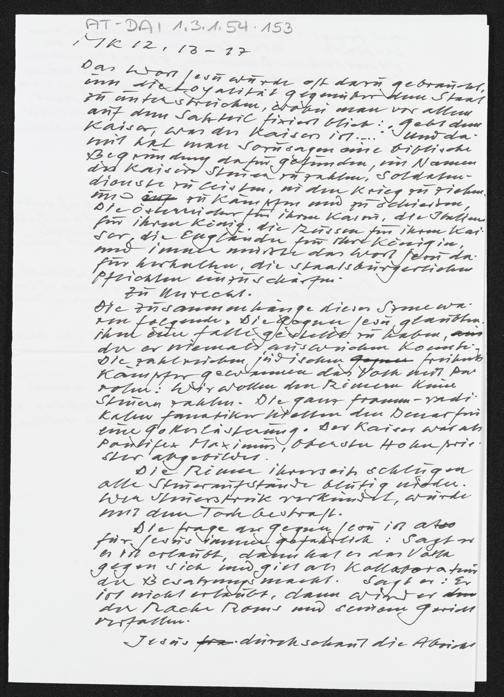 AT-DAI 1.3.1.54.153
MK 12, 13-17
Das Wort Jesu wurde oft dazu gebraucht,
um die Loyalität gegenüber dem Staat
zu unterstreichen, wobei man vor allem
auf dem Satzteil fixiert blieb: "Gebt dem
Kaiser, was des Kaisers ist...." Und da-
mit hat man sozusagen eine biblische
Begründung dafür gefunden, im Namen
des Kaisers Steuern zu zahlen, Soldaten-
dienste zu leisten, in den Krieg zu ziehen
und zu kämpfen und zu schießen,
Die Österreicher für ihren Kaiser, die Italiener
für ihren König, die Russen für ihren Kai-
ser, die Engländer für ihre Königin,
und immer mußte das Wort Jesu da-
für herhalten, die staatsbürgerlichen
Pflichten einzuschärfen.
Zu Unrecht.
Die Zusammenhänge dieser Szene wa-
ren folgende: Die Gegner Jesu glaubten,
ihm eine Falle gestellt zu haben, aus
der er niemals ausweichen konnte.
Die zahlreichen jüdischen Freiheits-
kämpfer gewannen das Volk mit der Pa-
role: Wir wollen den Römern keine
Steuern zahlen. Die ganz fromm-radi-
kalen Fanatiker hielten den Denar für
eine Gotteslästerung. Der Kaiser war als
Pontifex Maximus, Oberster Hohepries-
ter abgebildet.
Die Römer ihrerseits schlugen
alle Steueraufstände blutig nieder.
Wer Steuerstreik verkündet, wurde
mit dem Tode bestraft.
Die Frage der Gegner Jesu ist also
für Jesus immer gefährlich: Sagt er
es ist erlaubt, dann hat er das Volk
gegen sich und gilt als Kollaborateur
der Besatzungsmacht. Sagt er: Es
ist nicht erlaubt, dann wird er
der Rache Roms und seinem Gericht
verfallen.
Jesus durchschaut die Absicht